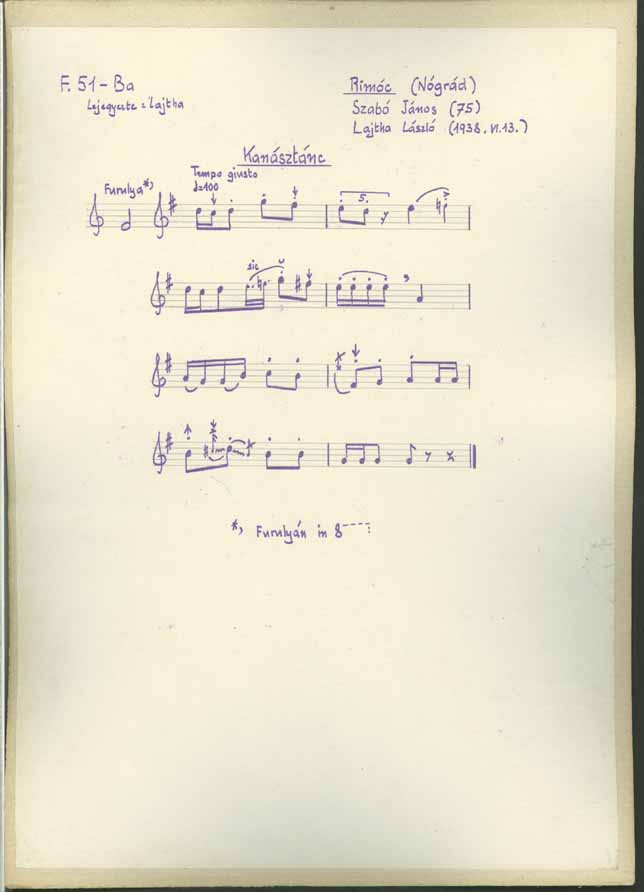 F. 51-Ba
Lejegyezte: Lajtha
Rimóc (Nógrád)
Szabó János (75)
Lajtha László (1938. VI. 13.)
Kanásztánc
Furulya*)
Tempo giusto
♩=100
5
sic
*) Furulyán in 8